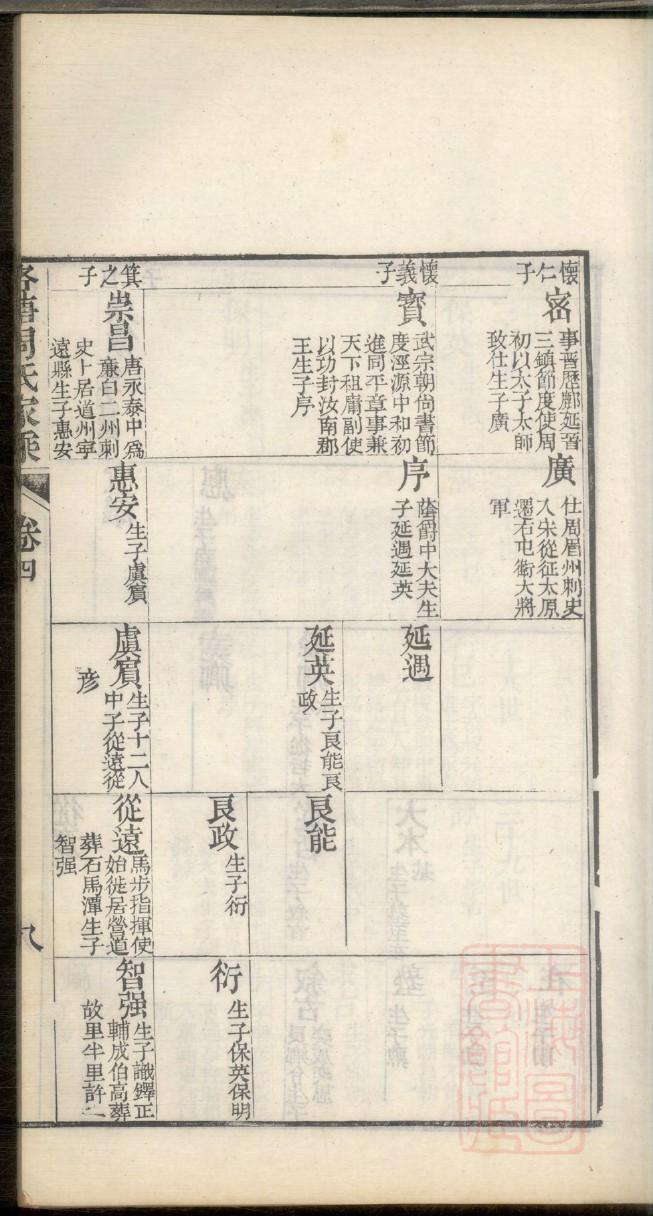 懷仁子
密
事晉歷鄜延晉
三鎮節度使周
初以太子太師
致仕生子廣
懷義子
寶
武宗朝尙書節
度涇源中和初
進同平章事兼
天下租庸副使
以功封汝南郡
王生子序
箕之子
崇昌
唐永泰中爲
廉白二州刺
史卜居道州寜
遠縣生子惠安
廣
仕周眉州刺史
入宋從征太原
還右屯衛大將
軍
序
蔭爵中大夫生
子延遇延英
惠安
生子虞賔
延遇
延英
生子良能良
政
虞賔
生子十二人
中子從遠從
彥
良能
良政
生子衍
從遠
馬步指揮使
始徙居營道
葬石馬潭生子
智强
衍
生子保英保明
智强
生子識鐸正
輔成伯高葬
故里半里許
周氏家乘
卷四
八